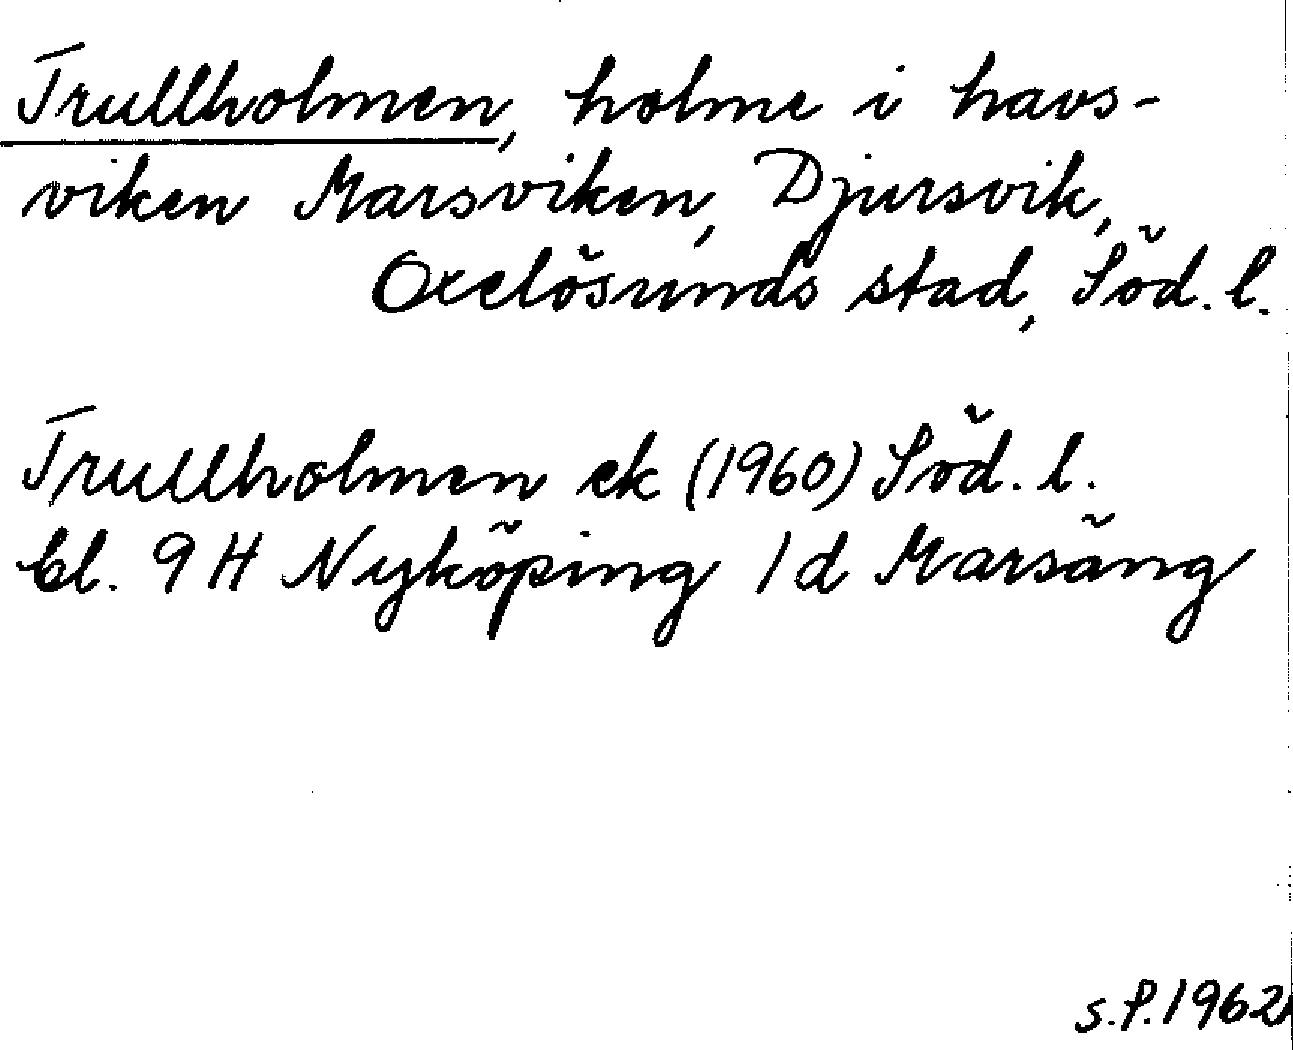 Trullholmen, holme i havs-
viken Marsviken, Djursvik,
Oxelösunds stad, Söd. l.
Trullholmen ek (1960) Söd. l.
bl. 9 H Nyköping 1 d Marsäng
S.P. 1962